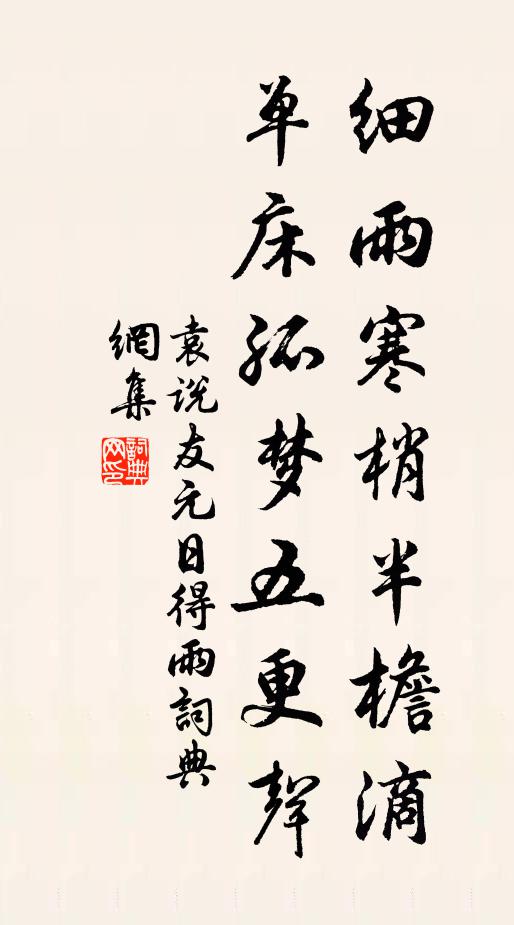 细雨寒梢半檐滴
单床孤梦五更声
袁说友元日得雨词典
網集
詞典網印